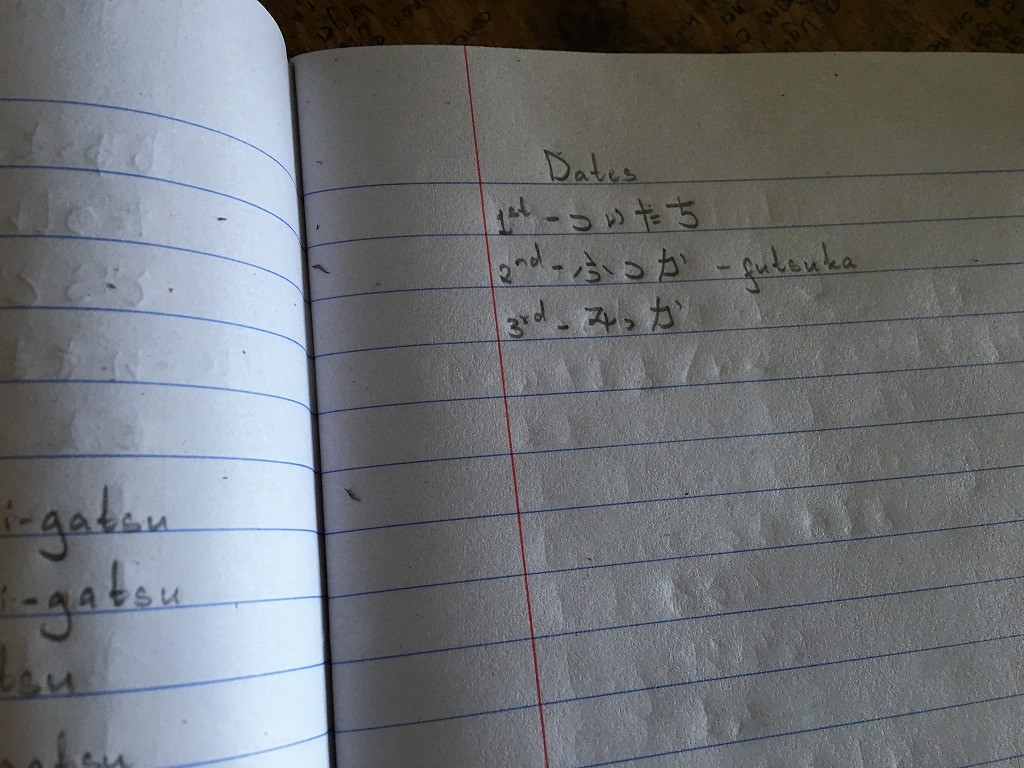 i-gatsu
i-gatsu
tsu
gatsu
Dates
1st - ついたち
2nd - ふつか - futsuka
3rd - みっか